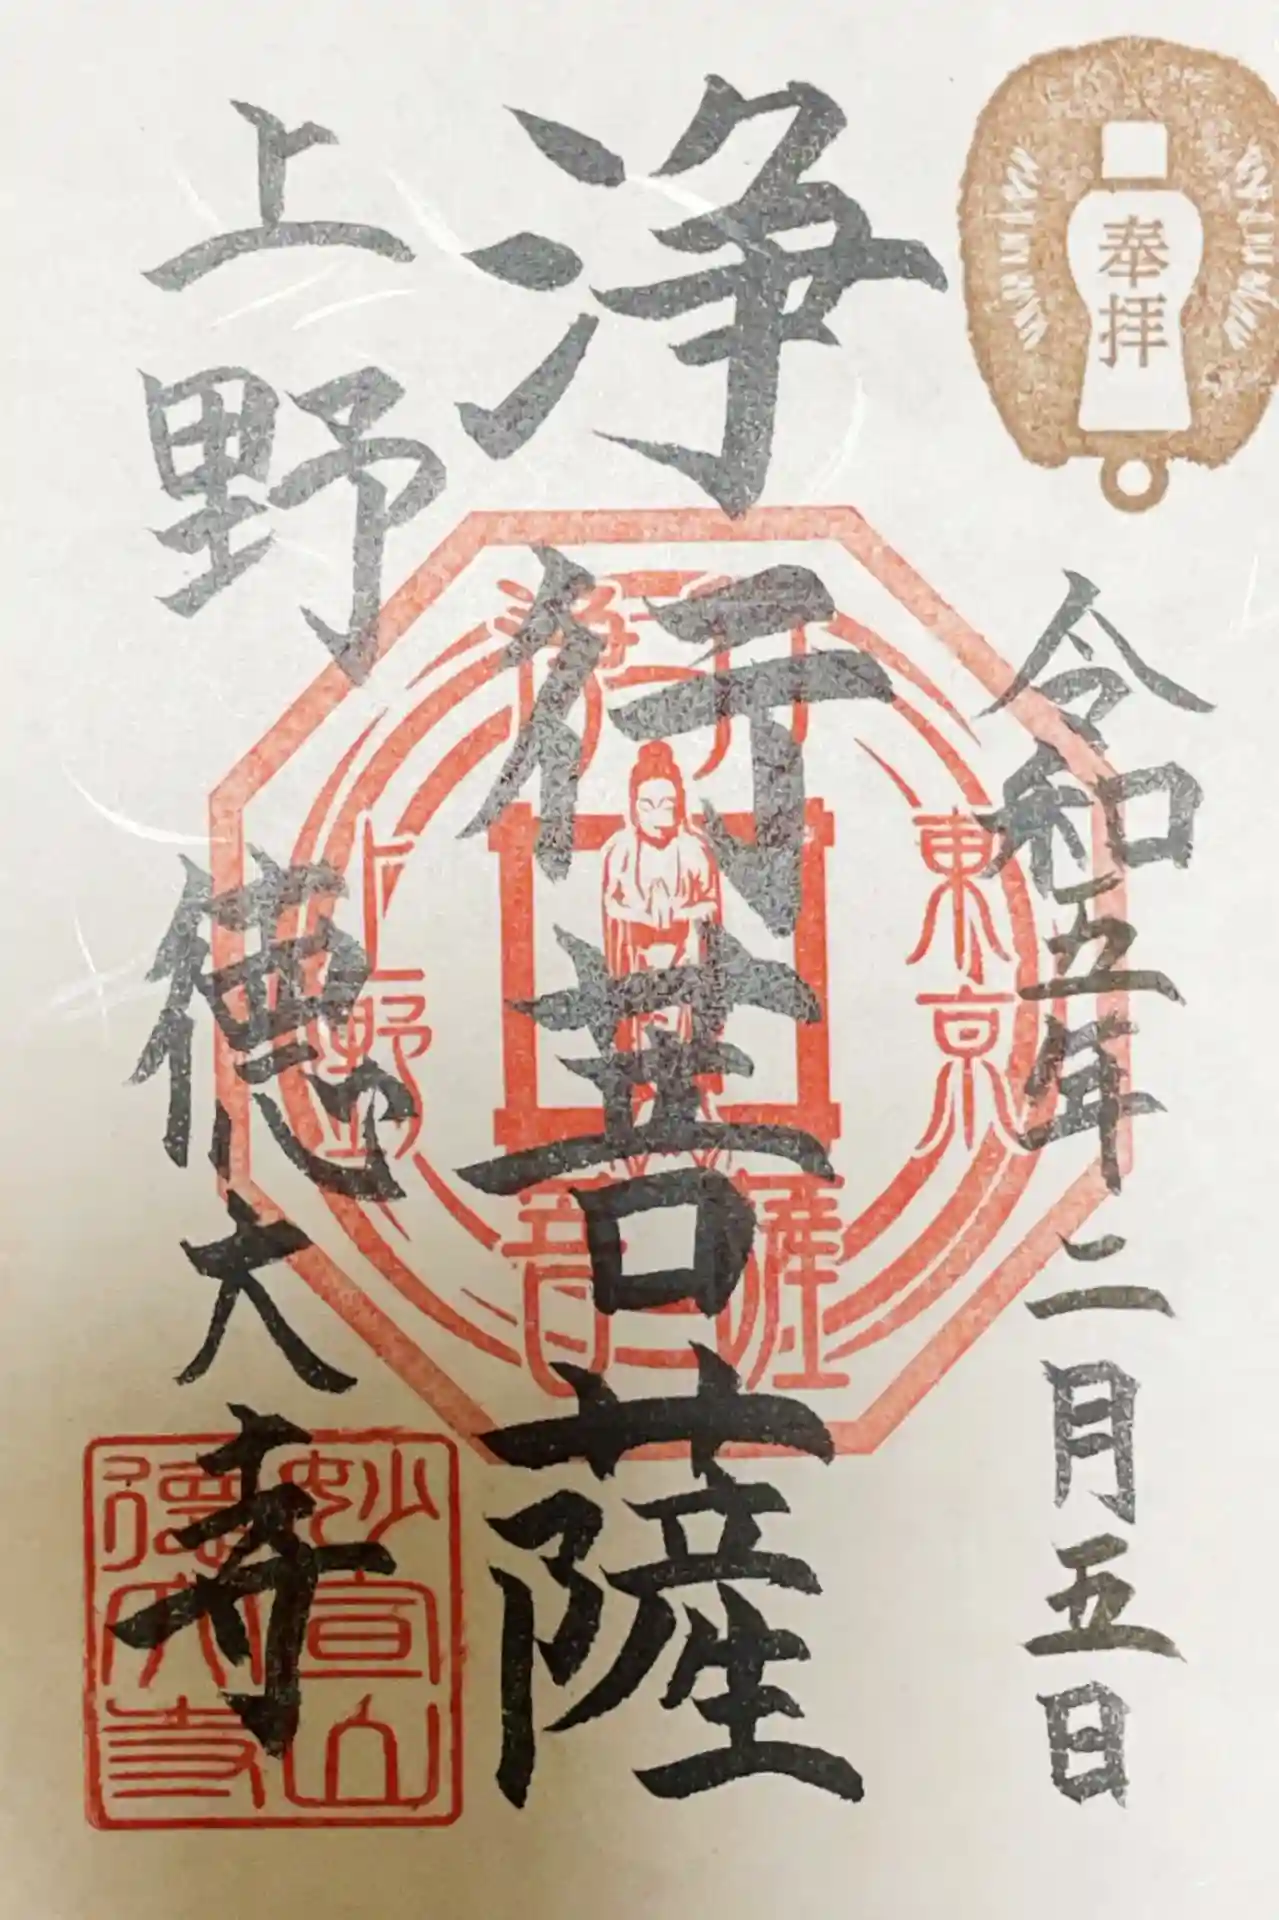 奉拝
令和五年二月五日
浄行菩薩
上野
徳大寺
浄行
菩薩
東京
上野
妙宣山
徳大寺